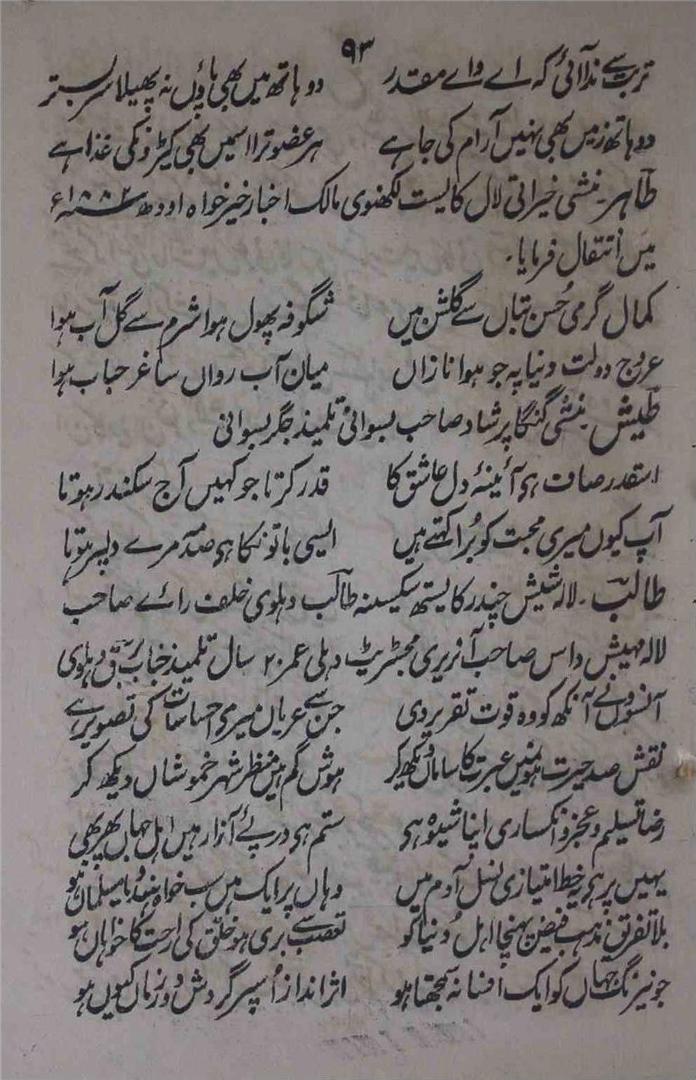 ۹۳
تربت سے ندا آئی کہ اے وائے مقدر دو ہاتھ میں بھی پاؤں نہ پھیلا سر بستر
دو ہاتھ زمیں بھی نہیں آرام کی جا ہے ہر عضو ترا اسمیں بھی کیڑونکی غذا ہے
طاہر۔ منشی خیراتی لال کایست لکھنوی مالک اخبار خیر خواہ اودھ ۱۸۸۲ء
میں انتقال فرمایا۔
کمال گرمی حُسن بتاں سے گلشن میں شگوفہ پھول ہوا شرم سے گل آب ہوا
عروج دولت دنیا پہ جو ہوا نازاں میان آب رواں ساغر حباب ہوا
طیش۔ منشی گنگا پرشاد صاحب بسوانی تلمیذ جگر بسوانی
اسقدر صاف ہی آئینۂ دل عاشق کا قدر کرتا جو کہیں آج سکندر ہوتا
آپ کیوں میری محبت کو بُرا کہتے ہیں ایسی باتونکا ہی صدمہ مرے دلپر ہوتا
طالب۔ لالہ شیش چندر کایستھ سکسینہ طالب دہلوی خلف رائے صاحب
لالہ مہیش داس صاحب آنریری مجسٹریٹ دہلی عمر ۲۰ سال تلمیذ جناب برق دہلوی
آنسوؤں نے آنکھ کو وہ قوت تقریر دی جن سے عریاں میرے احساسات کی تصویر ہے
نقش صد حیرت ہوں میں عبرت کا ساماں دیکھ کر ہوش گم ہیں منظر شہر خموشاں دیکھ کر
رضا تسلیم و عجز و انکساری اپنا شیوہ ہی ستم ہی درپئے آزار ہیں اہل جہاں پھر بھی
یہیں پر ہی یہ خط امتیازی نسل آدم میں وہاں پر ایک ہیں سب خواہ ہندو یا مسلماں ہو
بلا تفریق مذہب فیض پہنچا اہل دنیا کو تعصب سے بری ہو خلق کی راحت کا خواہاں ہو
جو نیرنگ جہاں کو ایک افسانہ سمجھتا ہو اثر انداز اُسپر گردش دور زماں کیوں ہو